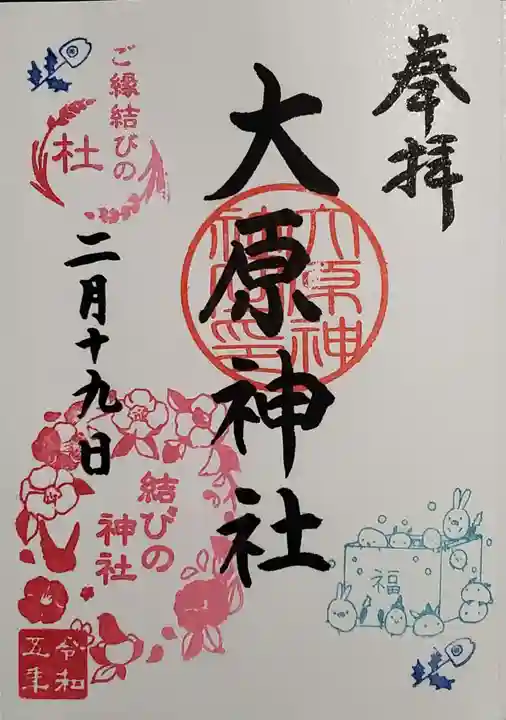 奉拝
大原神社
ご縁結びの
杜
二月十九日
結びの
神社
福
令和
五年